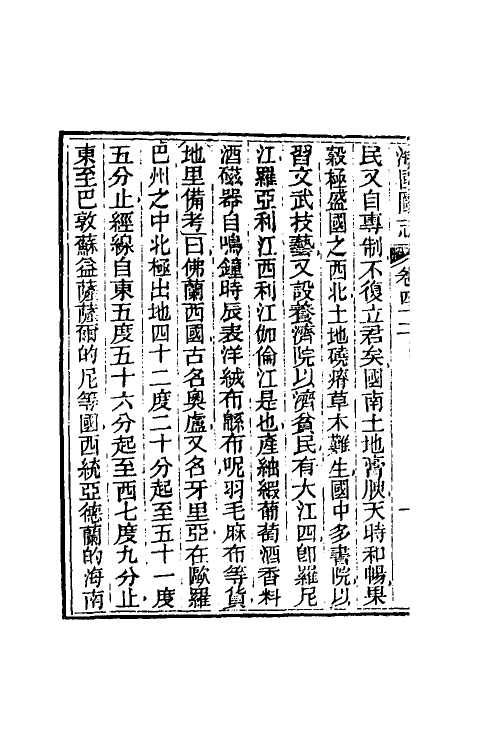 海國圖志 卷四二 一
民又自專制不復立君矣國南土地膏腴天時和暢果
穀極盛國之西北土地磽瘠草木難生國中多書院以
習文武技藝又設養濟院以濟貧民有大江四卽羅尼
江羅亞利江西利江伽倫江是也產紬緞葡萄酒香料
酒磁器自鳴鐘時辰表洋絨布緜布呢羽毛麻布等貨
地里備考曰佛蘭西國古名奧盧又名牙里亞在歐羅
巴州之中北極出地四十二度二十分起至五十一度
五分止經線自東五度五十六分起至西七度九分止
東至巴敦蘇益薩薩爾的尼等國西統亞德蘭的海南